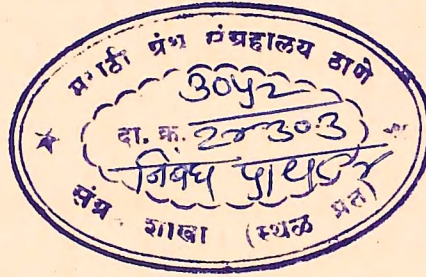 मराठी ग्रंथ संग्रहालय ठाणे
३०५२
दा. क्र. २४३०३
निबंध
संग्र शाखा (स्थळ प्रत)